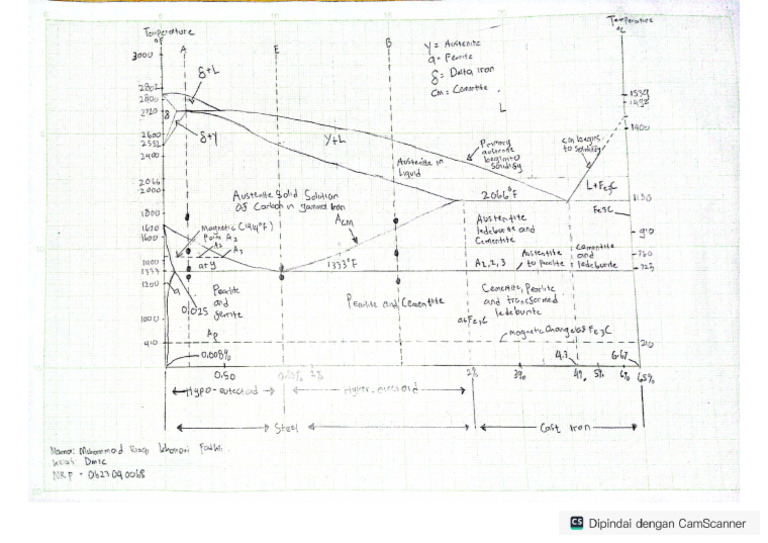 Temperature
°F
A
E
B
Temperature
°C
γ = Austenite
α = Ferrite
δ = Delta, Iron
Cm = Cementite
3000
δ+L
L
2800
δ
1539
2720
δ+γ
γ+L
1400
2600
2400
Primary
austenite
begins to
solidify
Cm begins
to solidify
Austenite in
Liquid
L+Fe3C
2066
2000
2066°F
1130
Austenite Solid Solution
Of Carbon in gamma Iron
Fe3C
1800
ACM
Ledeburite and
Cementite
1600
Magnetic (1414°F)
Point A2
A2
A3
910
760
723
Austenite
to pearlite
Cementite
and
ledeburite
A1,2,3
1333°F
α+γ
1333
1200
α
0,025
Pearlite
and
ferrite
Pearlite and Cementite
Cementite, Pearlite
and transformed
ledeburite
1000
α+Fe3C
magnetic Change of Fe3C
410
210
0,008%
4.3
6.67
0,50
2%
3%
4%
5%
6%
Hypo-eutectoid
Hyper-eutectoid
Steel
Cast Iron
Nama: Muhammad
Kelas
NRP
Dipindai dengan CamScanner